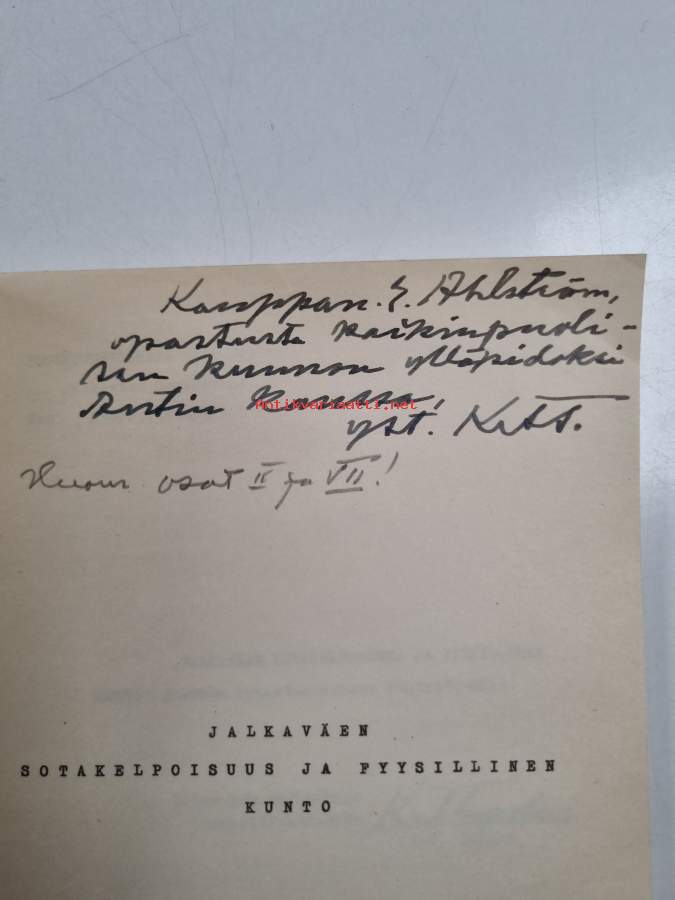 Kauppan. E. Ahlström,
opastusta kaikinpuoli-
sen kunnon ylläpidoksi
Antikvariaatti.net
yst.
Huom osat II ja VII!
JALKAVÄEN
SOTAKELPOISUUS JA FYYSILLINEN
KUNTO